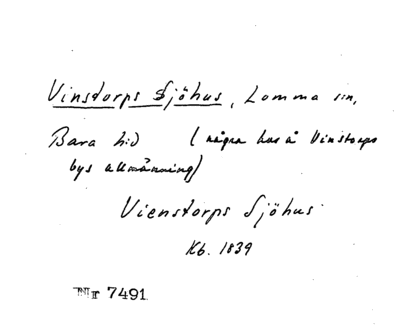 Vinstorps Sjöhus, Lomma sn,
Bara hd (några hus å Vinstorps
bys allmänning)
Vienstorps Sjöhus
Kb. 1839
Nr 7491